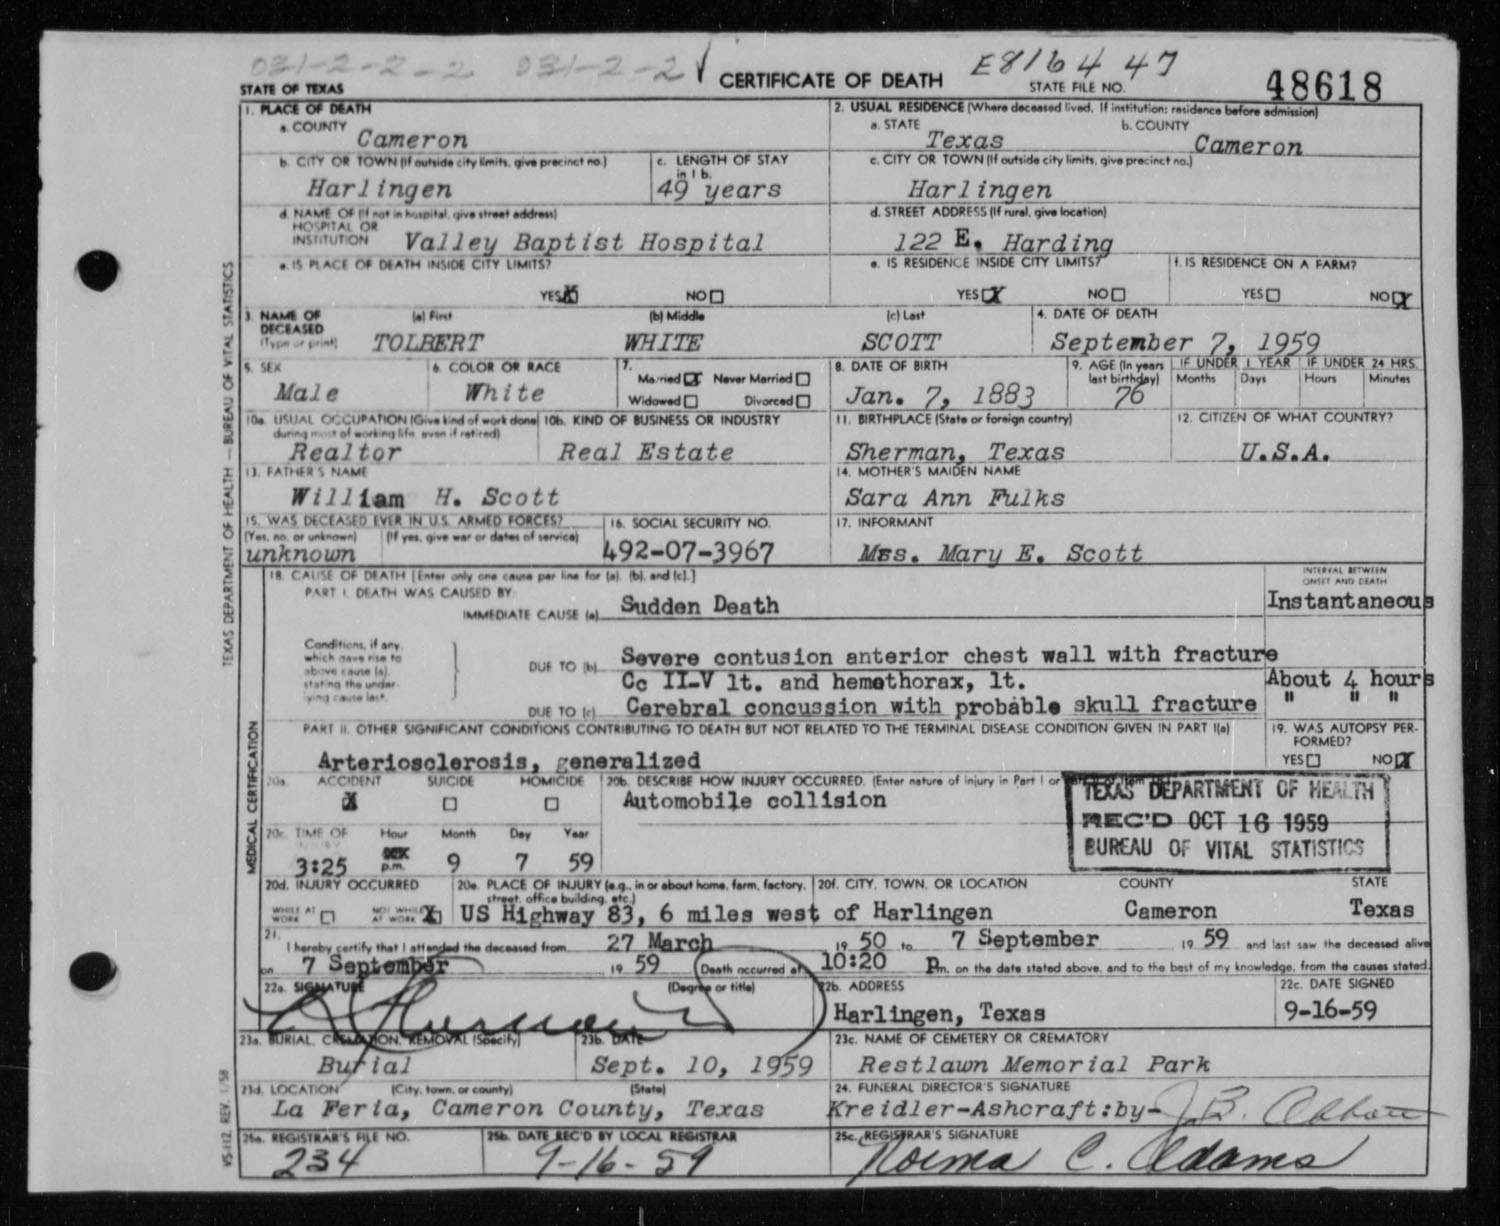 031-2-2-2 031-2-2 CERTIFICATE OF DEATH E816447
STATE OF TEXAS STATE FILE NO. 48618
1. PLACE OF DEATH
a. COUNTY
Cameron
2. USUAL RESIDENCE (Where deceased lived. If institution: residence before admission)
a. STATE b. COUNTY
Texas Cameron
b. CITY OR TOWN (If outside city limits, give precinct no.)
Harlingen
c. LENGTH OF STAY
in 1 b.
49 years
c. CITY OR TOWN (If outside city limits, give precinct no.)
Harlingen
d. NAME OF (If not in hospital, give street address)
HOSPITAL OR
INSTITUTION Valley Baptist Hospital
d. STREET ADDRESS (If rural, give location)
122 E. Harding
e. IS PLACE OF DEATH INSIDE CITY LIMITS?
YES X NO
e. IS RESIDENCE INSIDE CITY LIMITS?
YES X NO
f. IS RESIDENCE ON A FARM?
YES NO X
3. NAME OF (a) First (b) Middle (c) Last
DECEASED
(Type or print) TOLBERT WHITE SCOTT
4. DATE OF DEATH
September 7, 1959
5. SEX
Male
6. COLOR OR RACE
White
7.
Married X Never Married
Widowed Divorced
8. DATE OF BIRTH
Jan. 7, 1883
9. AGE (In years
last birthday)
76
IF UNDER 1 YEAR IF UNDER 24 HRS.
Months Days Hours Minutes
10a. USUAL OCCUPATION (Give kind of work done
during most of working life, even if retired)
Realtor
10b. KIND OF BUSINESS OR INDUSTRY
Real Estate
11. BIRTHPLACE (State or foreign country)
Sherman, Texas
12. CITIZEN OF WHAT COUNTRY?
U.S.A.
13. FATHER'S NAME
William H. Scott
14. MOTHER'S MAIDEN NAME
Sara Ann Fulks
15. WAS DECEASED EVER IN U.S. ARMED FORCES?
(Yes, no, or unknown) (If yes, give war or dates of service)
unknown
16. SOCIAL SECURITY NO.
492-07-3967
17. INFORMANT
Mrs. Mary E. Scott
18. CAUSE OF DEATH [Enter only one cause per line for (a), (b), and (c).]
PART I. DEATH WAS CAUSED BY:
IMMEDIATE CAUSE (a) Sudden Death
INTERVAL BETWEEN
ONSET AND DEATH
Instantaneous
Conditions, if any,
which gave rise to
above cause (a),
stating the under-
lying cause last.
DUE TO (b) Severe contusion anterior chest wall with fracture
Cc II-V lt. and hemothorax, lt. About 4 hours
DUE TO (c) Cerebral concussion with probable skull fracture " " "
PART II. OTHER SIGNIFICANT CONDITIONS CONTRIBUTING TO DEATH BUT NOT RELATED TO THE TERMINAL DISEASE CONDITION GIVEN IN PART I(a)
Arteriosclerosis, generalized
19. WAS AUTOPSY PER-
FORMED?
YES NO X
20a. ACCIDENT SUICIDE HOMICIDE
X
20b. DESCRIBE HOW INJURY OCCURRED. (Enter nature of injury in Part I or
Automobile collision
TEXAS DEPARTMENT OF HEALTH
REC'D OCT 16 1959
BUREAU OF VITAL STATISTICS
20c. TIME OF Hour Month Day Year
3:25 p.m. 9 7 59
20d. INJURY OCCURRED
WHILE AT
WORK
NOT WHILE
AT WORK X
20e. PLACE OF INJURY (e.g., in or about home, farm, factory,
street, office building, etc.)
US Highway 83, 6 miles west of Harlingen
20f. CITY, TOWN, OR LOCATION COUNTY STATE
Cameron Texas
21.
I hereby certify that I attended the deceased from 27 March 19 50 to 7 September 19 59 and last saw the deceased alive
on 7 September 19 59 Death occurred at 10:20 P m. on the date stated above, and to the best of my knowledge, from the causes stated.
22a. SIGNATURE (Degree or title)
22b. ADDRESS
Harlingen, Texas
22c. DATE SIGNED
9-16-59
23a. BURIAL, CREMATION, REMOVAL (Specify)
Burial
23b. DATE
Sept. 10, 1959
23c. NAME OF CEMETERY OR CREMATORY
Restlawn Memorial Park
23d. LOCATION (City, town, or county) (State)
La Feria, Cameron County, Texas
24. FUNERAL DIRECTOR'S SIGNATURE
Kreidler-Ashcraft:by- J. B.
25a. REGISTRAR'S FILE NO.
234
25b. DATE REC'D BY LOCAL REGISTRAR
9-16-59
25c. REGISTRAR'S SIGNATURE
Norma C. Adams
TEXAS DEPARTMENT OF HEALTH — BUREAU OF VITAL STATISTICS
MEDICAL CERTIFICATION
VS-112, REV. 1/58